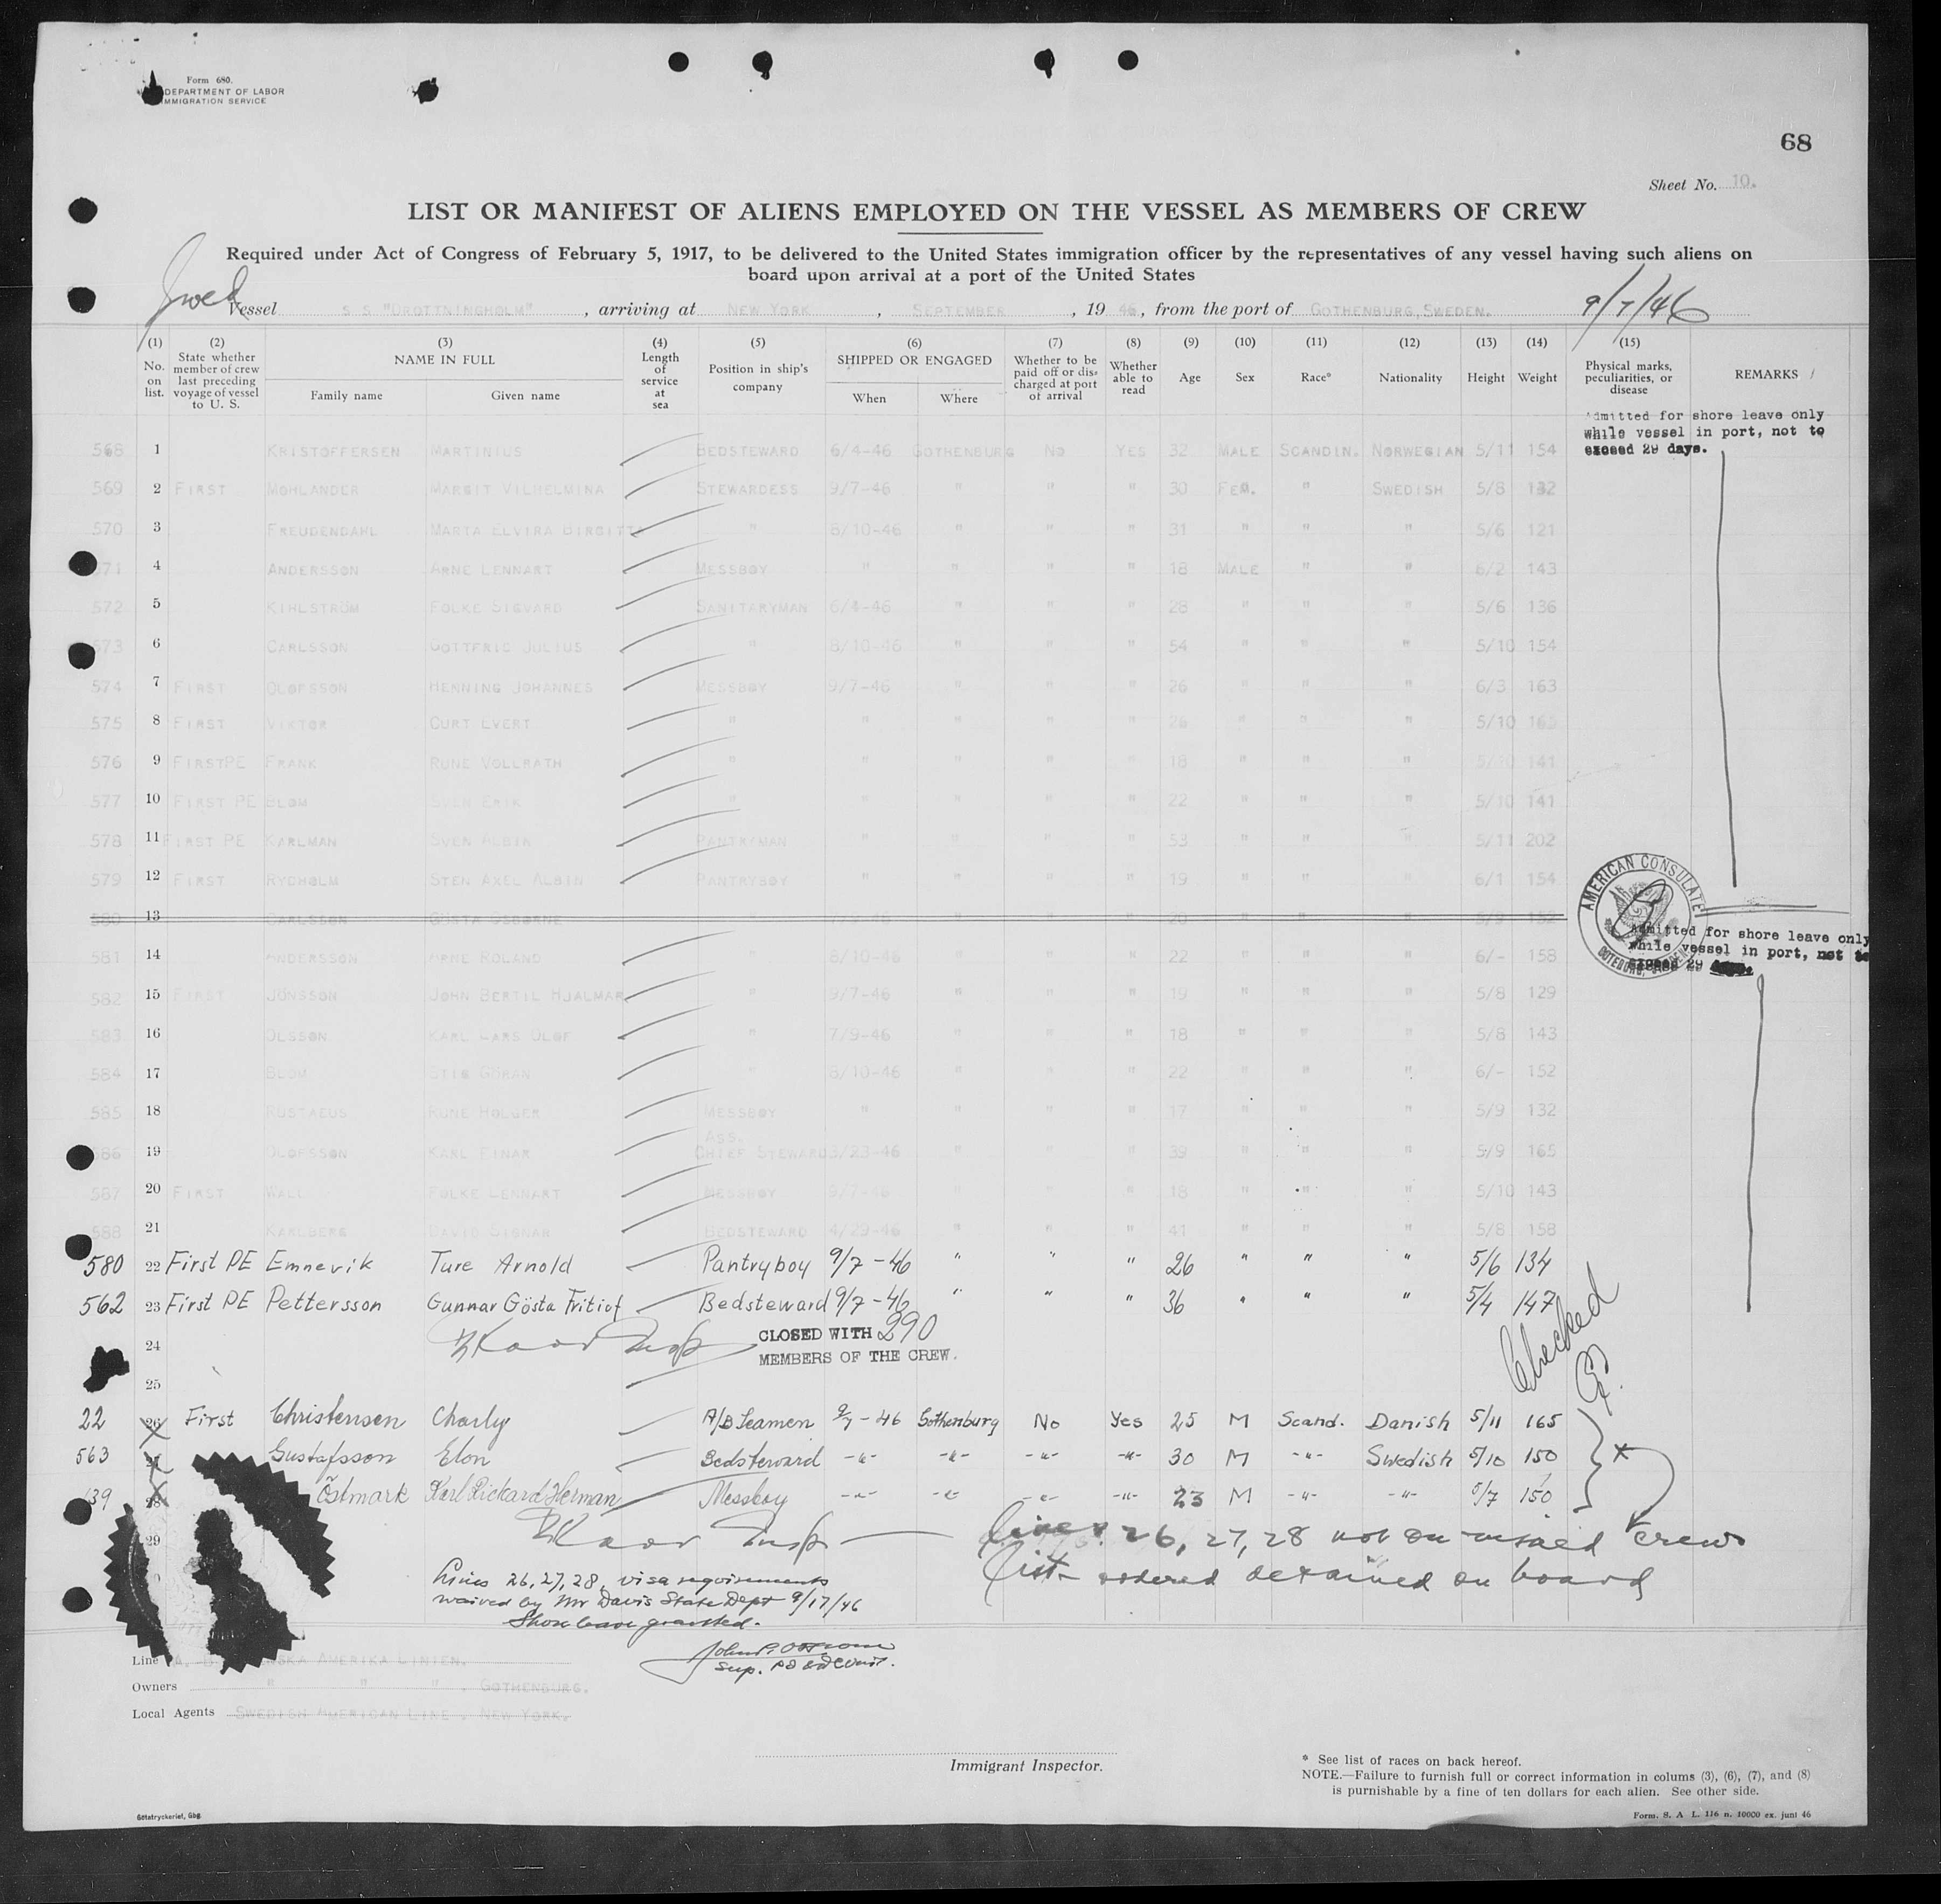 Form 680.
DEPARTMENT OF LABOR
IMMIGRATION SERVICE
68
Sheet No. 10.
LIST OR MANIFEST OF ALIENS EMPLOYED ON THE VESSEL AS MEMBERS OF CREW
Required under Act of Congress of February 5, 1917, to be delivered to the United States immigration officer by the representatives of any vessel having such aliens on
board upon arrival at a port of the United States
Swed
Vessel S S "DROTTNINGHOLM", arriving at NEW YORK, SEPTEMBER, 1946, from the port of GOTHENBURG, SWEDEN. 9/7/46
(1) No. on list. (2) State whether member of crew last preceding voyage of vessel to U. S. (3) NAME IN FULL Family name Given name (4) Length of service at sea (5) Position in ship's company (6) SHIPPED OR ENGAGED When Where (7) Whether to be paid off or discharged at port of arrival (8) Whether able to read (9) Age (10) Sex (11) Race* (12) Nationality (13) Height (14) Weight (15) Physical marks, peculiarities, or disease REMARKS
Admitted for shore leave only
while vessel in port, not to
exceed 29 days.
568 1 KRISTOFFERSEN MARTINIUS BEDSTEWARD 6/4-46 GOTHENBURG NO YES 32 MALE SCANDIN. NORWEGIAN 5/11 154
569 2 FIRST MOHLANDER MARGIT VILHELMINA STEWARDESS 9/7-46 " " " 30 FEM. " SWEDISH 5/8 132
570 3 FREUDENDAHL MARTA ELVIRA BIRGITTA " 8/10-46 " " " 31 " " " 5/6 121
571 4 ANDERSSON ARNE LENNART MESSBOY " " " " 18 MALE " " 6/2 143
572 5 KIHLSTRÖM FOLKE SIGVARD SANITARYMAN 6/4-46 " " " 28 " " " 5/6 136
573 6 CARLSSON GOTTFRID JULIUS " 8/10-46 " " " 54 " " " 5/10 154
574 7 FIRST OLOFSSON HENNING JOHANNES MESSBOY 9/7-46 " " " 26 " " " 6/3 163
575 8 FIRST VIKTOR CURT EVERT " " " " " 26 " " " 5/10 165
576 9 FIRST PE FRANK RUNE VOLLRATH " " " " " 18 " " " 5/10 141
577 10 FIRST PE BLOM SVEN ERIK " " " " " 22 " " " 5/10 141
578 11 FIRST PE KARLMAN SVEN ALBIN PANTRYMAN " " " " 53 " " " 5/11 202
579 12 FIRST RYDHOLM STEN AXEL ALBIN PANTRYBOY " " " " 19 " " " 6/1 154
580 13 CARLSSON GÖSTA OSBORNE " 20 " " " 5/9 152
AMERICAN CONSULATE
GOTEBORG, SWEDEN
Admitted for shore leave only
while vessel in port, not to
exceed 29 days.
581 14 ANDERSSON ARNE ROLAND 8/10-46 " " " 22 " " " 6/- 158
582 15 FIRST JÖNSSON JOHN BERTIL HJALMAR " 9/7-46 " " " 19 " " " 5/8 129
583 16 OLSSON KARL LARS OLOF " 7/9-46 " " " 18 " " " 5/8 143
584 17 BLOM STIG GÖRAN " 8/10-46 " " " 22 " " " 6/- 152
585 18 RUSTAEUS RUNE HOLGER MESSBOY " " " " 17 " " " 5/9 132
586 19 OLOFSSON KARL EINAR ASS. CHIEF STEWARD 3/23-46 " " " 39 " " " 5/9 165
587 20 FIRST WALL FOLKE LENNART MESSBOY 9/7-46 " " " 18 " " " 5/10 143
588 21 KARLBERG DAVID SIGNAR BEDSTEWARD 4/29-46 " " " 41 " " " 5/8 158
580 22 First PE Emnevik Ture Arnold Pantryboy 9/7-46 " " " 26 " " " 5/6 134
562 23 First PE Pettersson Gunnar Gösta Fritiof Bedsteward 9/7-46 " " " 36 " " " 5/4 147
24 CLOSED WITH 290
MEMBERS OF THE CREW.
Checked
25
22 26 First Christensen Charly A/B Seamen 9/7-46 Gothenburg No Yes 25 M Scand. Danish 5/11 165
563 27 Gustafsson Elon Bedsteward -"- -"- -"- -"- 30 M -"- Swedish 5/10 150
139 28 Östmark Karl Rickard Herman Messboy -"- -"- -"- -"- 23 M -"- -"- 5/7 150
29 Lines 26, 27, 28 not on visaed crew
list ordered detained on board
Lines 26, 27, 28, visa requirements
waived by Mr Davis State Dept 9/17/46
Shore leave granted.
Line A. B. SVENSKA AMERIKA LINIEN.
Owners " " ", GOTHENBURG.
Local Agents SWEDISH AMERICAN LINE, NEW YORK.
Immigrant Inspector.
* See list of races on back hereof.
NOTE.—Failure to furnish full or correct information in colums (3), (6), (7), and (8)
is purnishable by a fine of ten dollars for each alien. See other side.
Götatryckeriet, Gbg.
Form. S. A L. 116 n. 10000 ex. juni 46